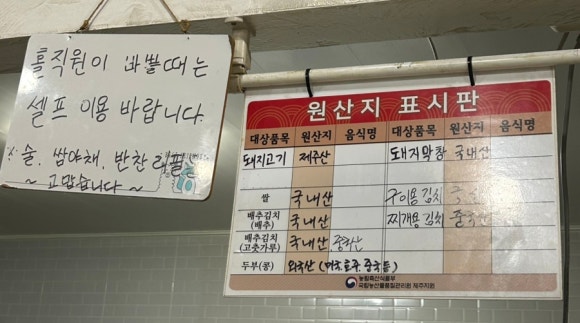 홀직원이 바쁠때는
셀프 이용 바랍니다.
술, 쌈야채, 반찬 리필은
~ 고맙습니다 ~
원산지 표시판
대상품목 원산지 음식명 대상품목 원산지 음식명
돼지고기 제주산 돼지막창 국내산
쌀 국내산 구이용김치
배추김치 (배추) 국내산 찌개용김치 중국산
배추김치 (고춧가루) 국내산, 중국산
두부(콩) 외국산 (미국,호주,중국 등)
농림축산식품부
국립농산물품질관리원 제주지원